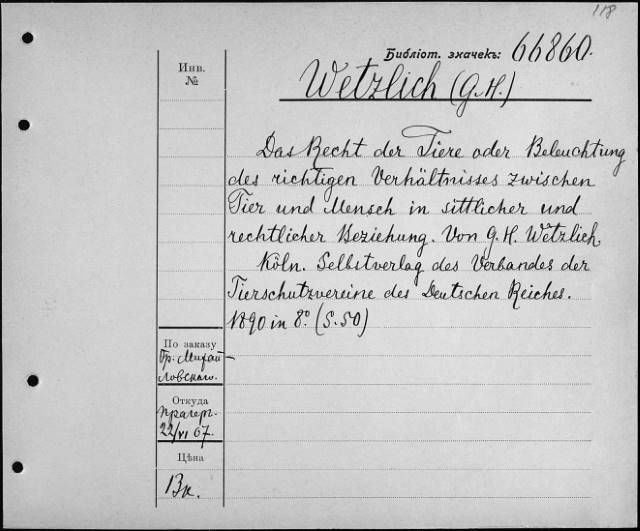 118
Библіот. значекъ: 66860.
Инв.
№
Wetzlich (G. H.)
Das Recht der Tiere oder Beleuchtung
des richtigen Verhältnisses zwischen
Tier und Mensch in sittlicher und
rechtlicher Beziehung. Von G. H. Wetzlich
Köln. Selbstverlag des Verbandes der
Tierschutzvereine des Deutschen Reiches.
1890 in 8° (S. 50)
По заказу
Гр. Михай-
ловскаго.
Откуда
Прагер.
22/VI 67.
Цѣна